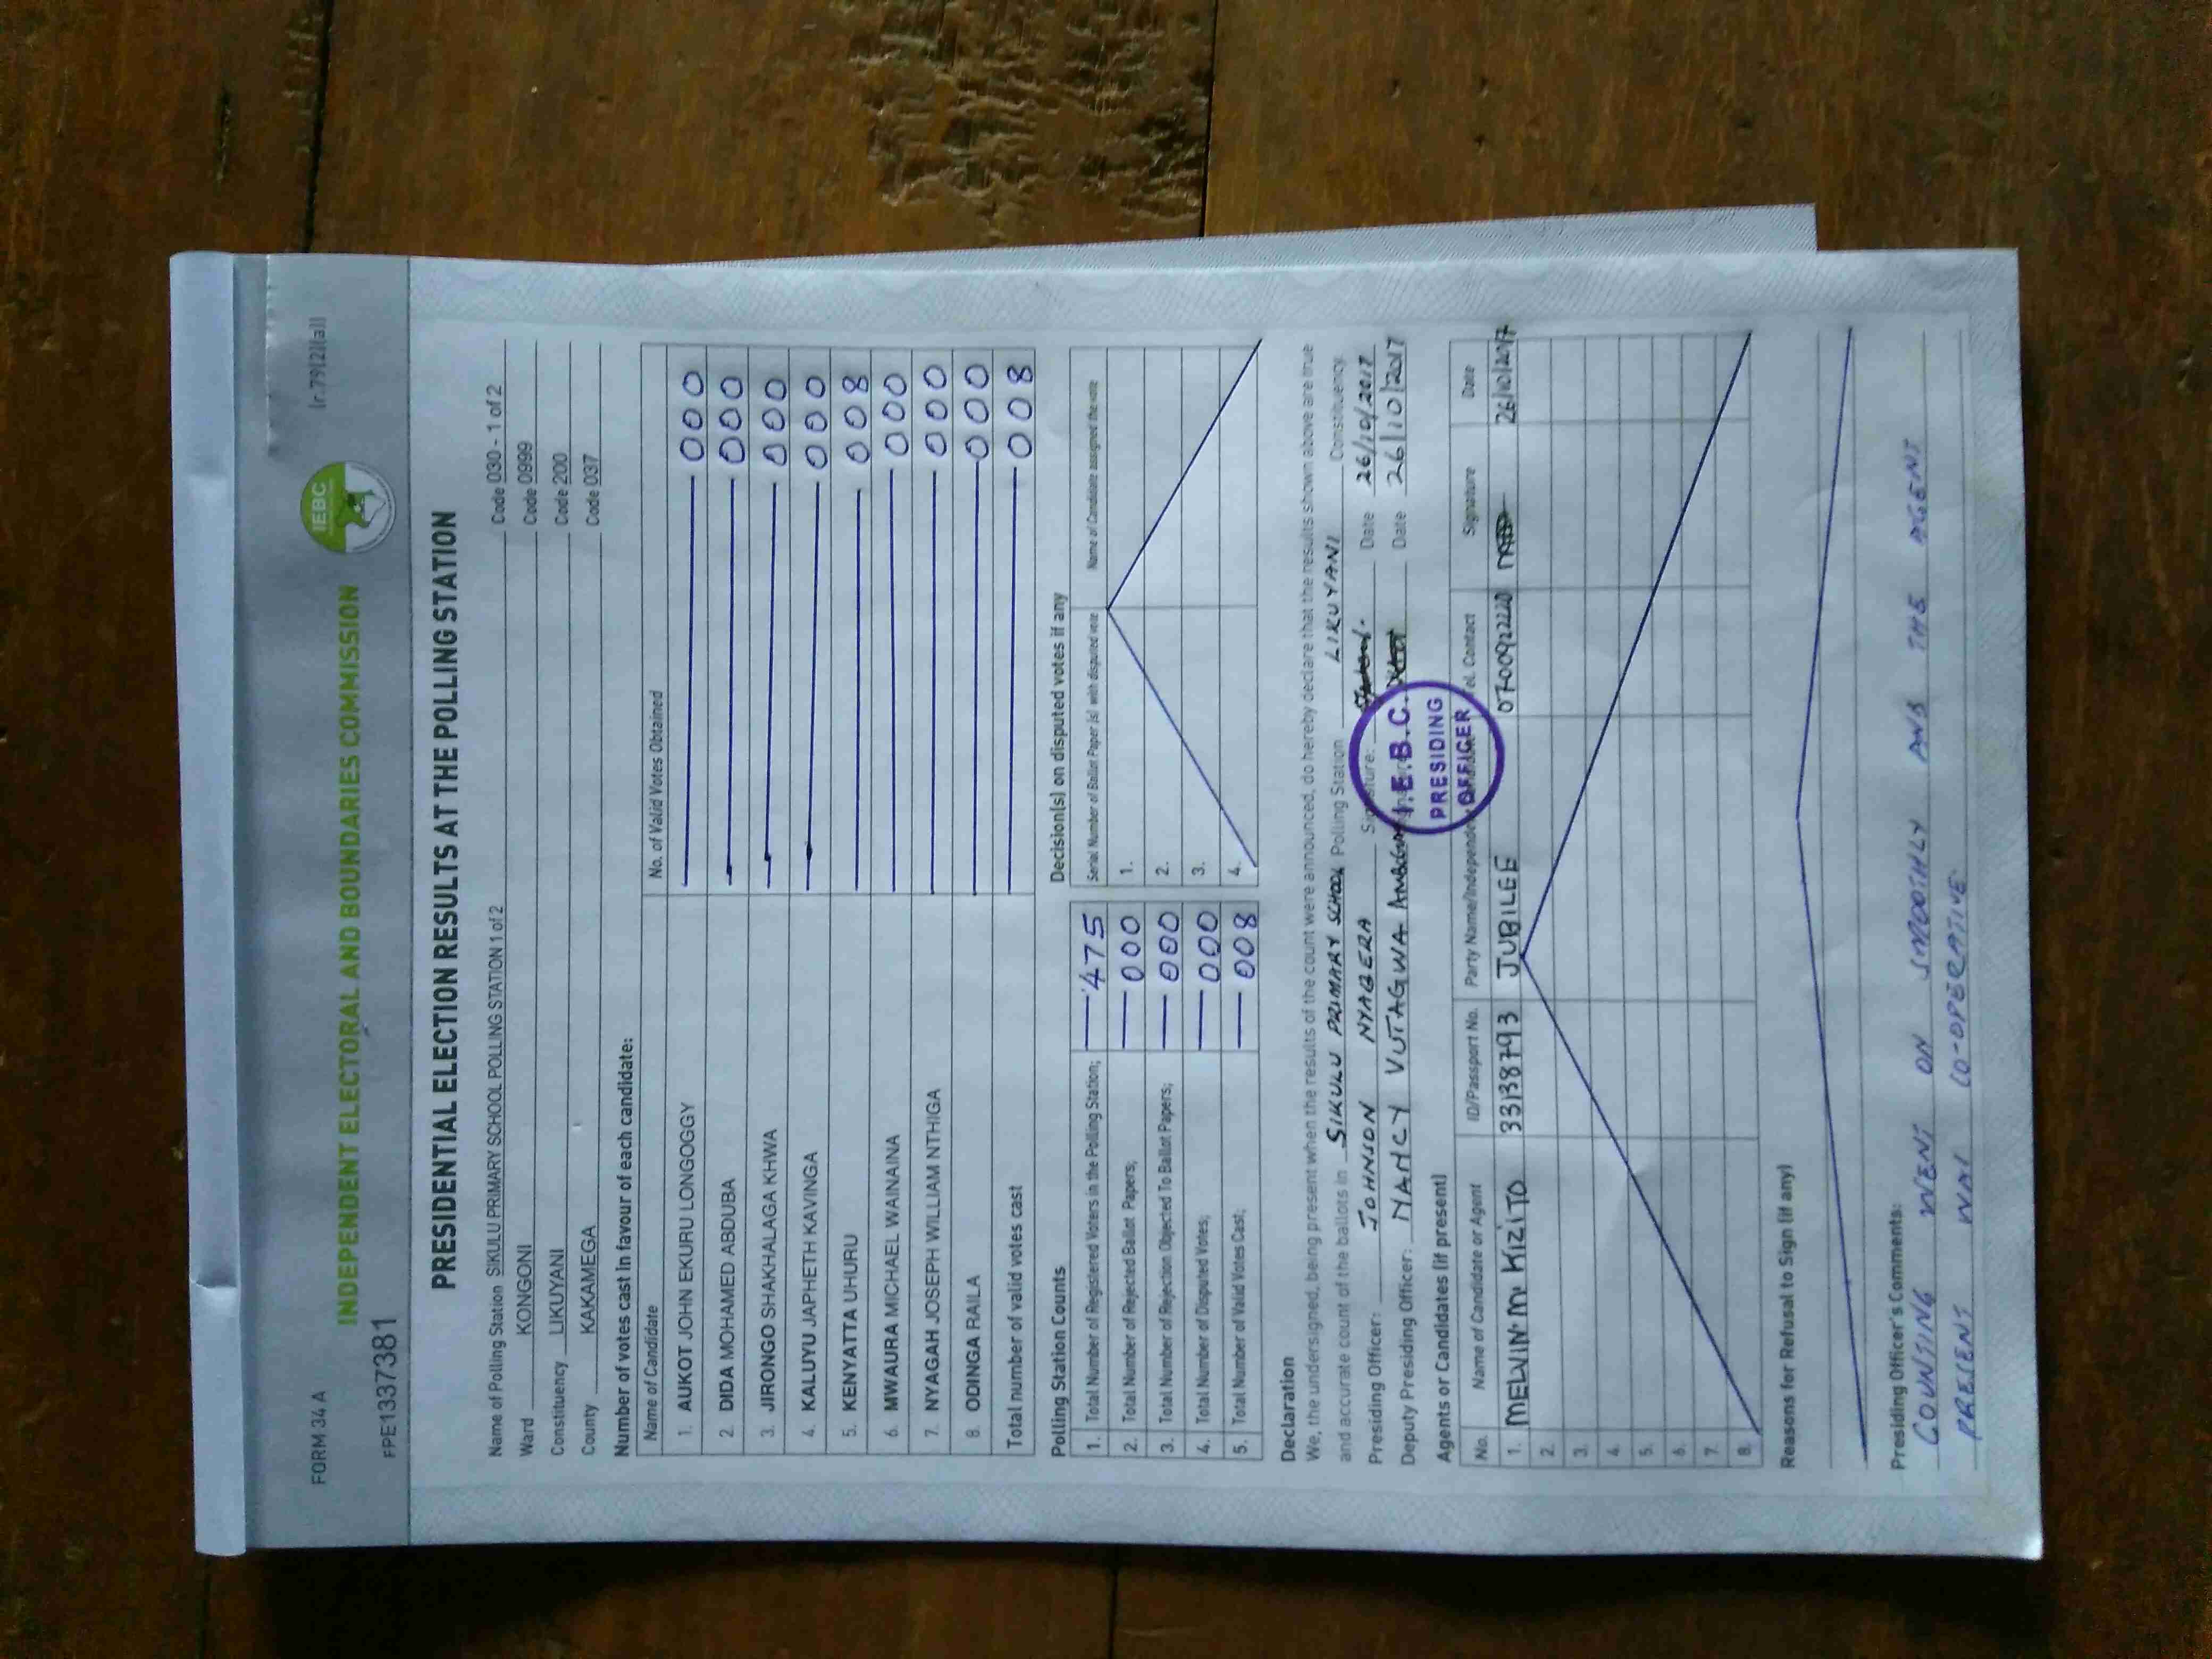 FORM 34 A
(r.79(2)(a))
INDEPENDENT ELECTORAL AND BOUNDARIES COMMISSION
IEBC
FPE1337381
PRESIDENTIAL ELECTION RESULTS AT THE POLLING STATION
Name of Polling Station SIKULU PRIMARY SCHOOL POLLING STATION 1 of 2 Code 030 - 1 of 2
Ward KONGONI Code 0999
Constituency LIKUYANI Code 200
County KAKAMEGA Code 037
Number of votes cast in favour of each candidate:
Name of Candidate No. of Valid Votes Obtained
1. AUKOT JOHN EKURU LONGOGGY 000
2. DIDA MOHAMED ABDUBA 000
3. JIRONGO SHAKHALAGA KHWA 000
4. KALUYU JAPHETH KAVINGA 000
5. KENYATTA UHURU 008
6. MWAURA MICHAEL WAINAINA 000
7. NYAGAH JOSEPH WILLIAM NTHIGA 000
8. ODINGA RAILA 000
Total number of valid votes cast 008
Polling Station Counts
1. Total Number of Registered Voters in the Polling Station; 475
2. Total Number of Rejected Ballot Papers; 000
3. Total Number of Rejection Objected To Ballot Papers; 000
4. Total Number of Disputed Votes; 000
5. Total Number of Valid Votes Cast; 008
Decision(s) on disputed votes if any
Serial Number of Ballot Paper (s) with disputed vote Name of Candidate assigned the vote
1.
2.
3.
4.
Declaration
We, the undersigned, being present when the results of the count were announced, do hereby declare that the results shown above are true
and accurate count of the ballots in SIKULU PRIMARY SCHOOL Polling Station LIKUYANI Constituency
Presiding Officer: JOHNSON NYAGERA Signature: Date 26/10/2017
Deputy Presiding Officer: NANCY VUTAGWA Date 26/10/2017
I.E.B.C.
PRESIDING
OFFICER
Agents or Candidates (if present)
No. Name of Candidate or Agent ID/Passport No. Party Name/Independent Tel. Contact Signature Date
1. MELVIN M. KIZITO 33138793 JUBILEE 0700922220 26/10/2017
2.
3.
4.
5.
6.
7.
8.
Reasons for Refusal to Sign (if any)
Presiding Officer's Comments:
COUNTING WENT ON SMOOTHLY AND THE AGENT
PRESENT WAS CO-OPERATIVE